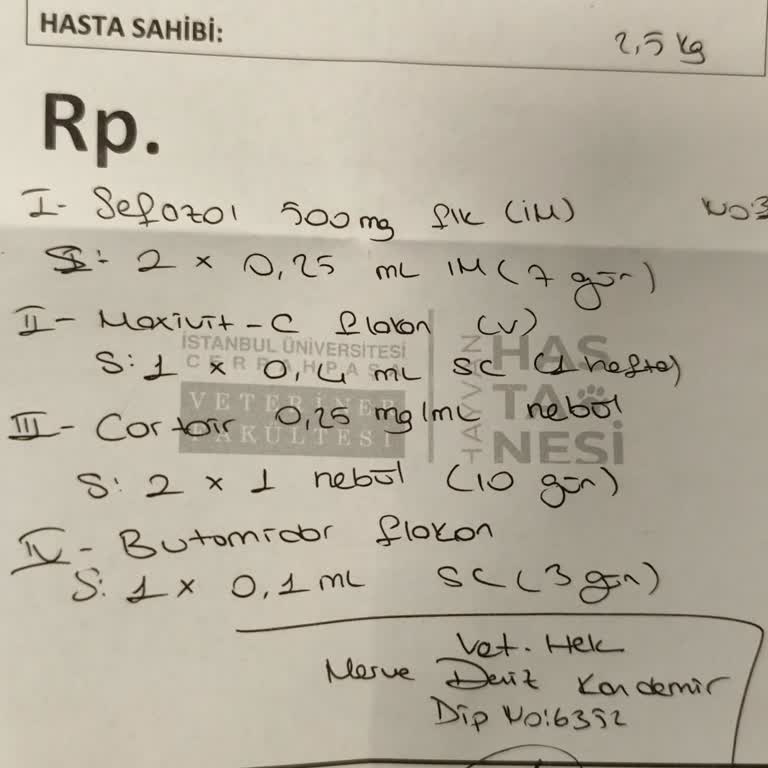 HASTA SAHİBİ:
2,5 kg
Rp.
I- Sefazol 500 mg flk (iM)
S: 2 x 0,25 mL IM (7 gün)
II- Maxivit-C flakon (V)
İSTANBUL ÜNİVERSİTESİ
CERRAHPAŞA
S: 1 x 0,4 mL SC (1 hafta)
VETERİNER FAKÜLTESİ
HAYVAN HASTANESİ
III- Cortair 0,25 mg/mL nebül
S: 2 x 1 nebül (10 gün)
IV- Butomidor flakon
S: 1 x 0,1 mL SC (3 gün)
Vet. Hek
Merve Deniz Kandemir
Dip No:6352